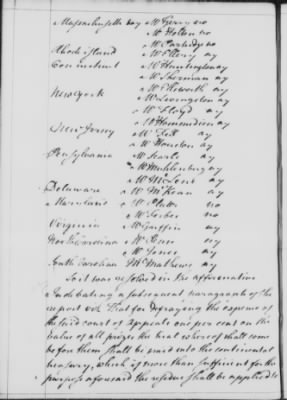 Massachusetts bay Mr Gerry no
Mr Holten no
Mr Partridge no
Rhode Island Mr Ellery ay
Connecticut Mr Huntington ay
Mr Sherman ay
Mr Elsworth ay
New York Mr Livingston ay
Mr Floyd ay
ay
New Jersey Mr Fell ay
Mr Houston ay
Pensylvania Mr Searle ay
Mr Muhlenberg ay
Mr McLene ay
Delaware Mr McKean ay
Maryland Mr Plater no
Mr Forbes no
Virginia Mr Griffin ay
North Carolina Mr Penn ay
Mr Jones ay
South Carolina Mr Mathews ay
So it was resolved in the affirmative
In debating a subsequent paragraph of the
report viz. That for defraying the expence of
the said court of Appeals one per cent on the
value of all prizes the trial whereof shall come
before them shall be paid into the continental
treasury, which if more than sufficient for the
purpose aforesaid the residue shall be applied to